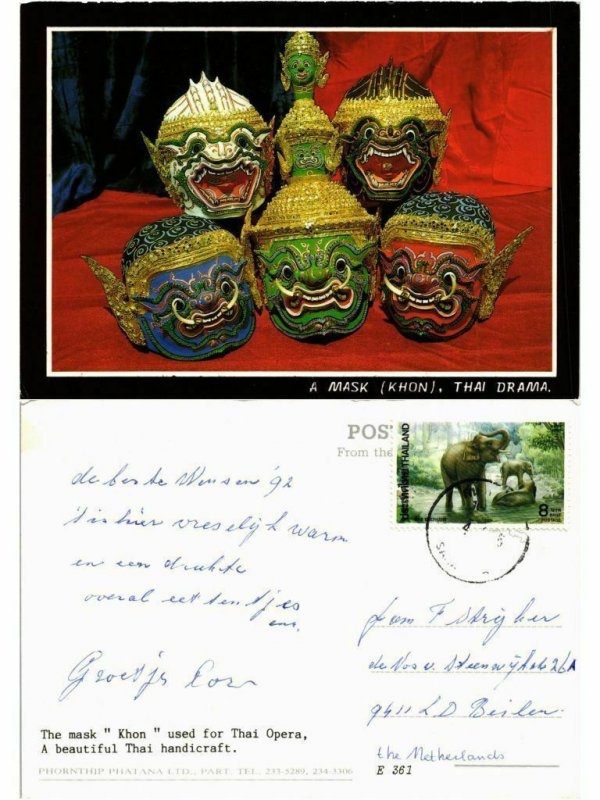 A MASK (KHON), THAI DRAMA.
POS
From the
ประเทศไทย THAILAND
8
บาท BAHT
POSTAGE
de beste Wensen '92
't is hier vreselijk warm
en een drukte
overal eettentjes
enz.
Groetjes Cor
Fam F Strijker
de Vos v. Steenwijkstr 26A
9411 LD Beilen
the Netherlands
The mask " Khon " used for Thai Opera,
A beautiful Thai handicraft.
PHORNTHIP PHATANA LTD., PART. TEL. 233-5289, 234-3306
E 361